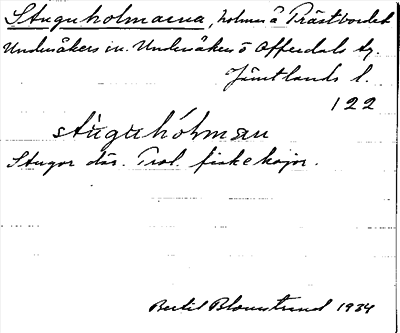 Stuguholmarna, holmar å Prästbordet
Undersåkers sn. Undersåkers o Offerdals tg.
Jämtlands l.
122
stùguhólman
Stugor där. Trol. fiskekojor.
Bertil Blomstrand 1934